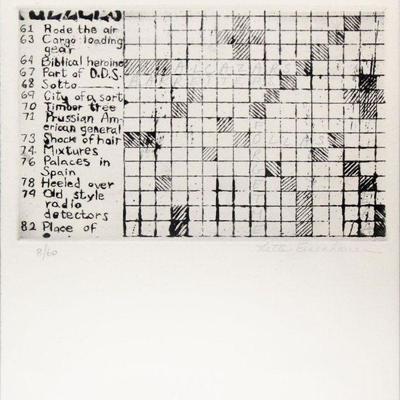 PUZZLES
61 Rode the air
63 Cargo loading
gear
64 Biblical heroine
67 Part of D.D.S.
68 Sotto
69 City of a sort
70 Timber tree
71 Prussian Am-
erican general
73 Shock of hair
74 Mixtures
76 Palaces in
Spain
78 Heeled over
79 Old style
radio
detectors
82 Place of
8/60